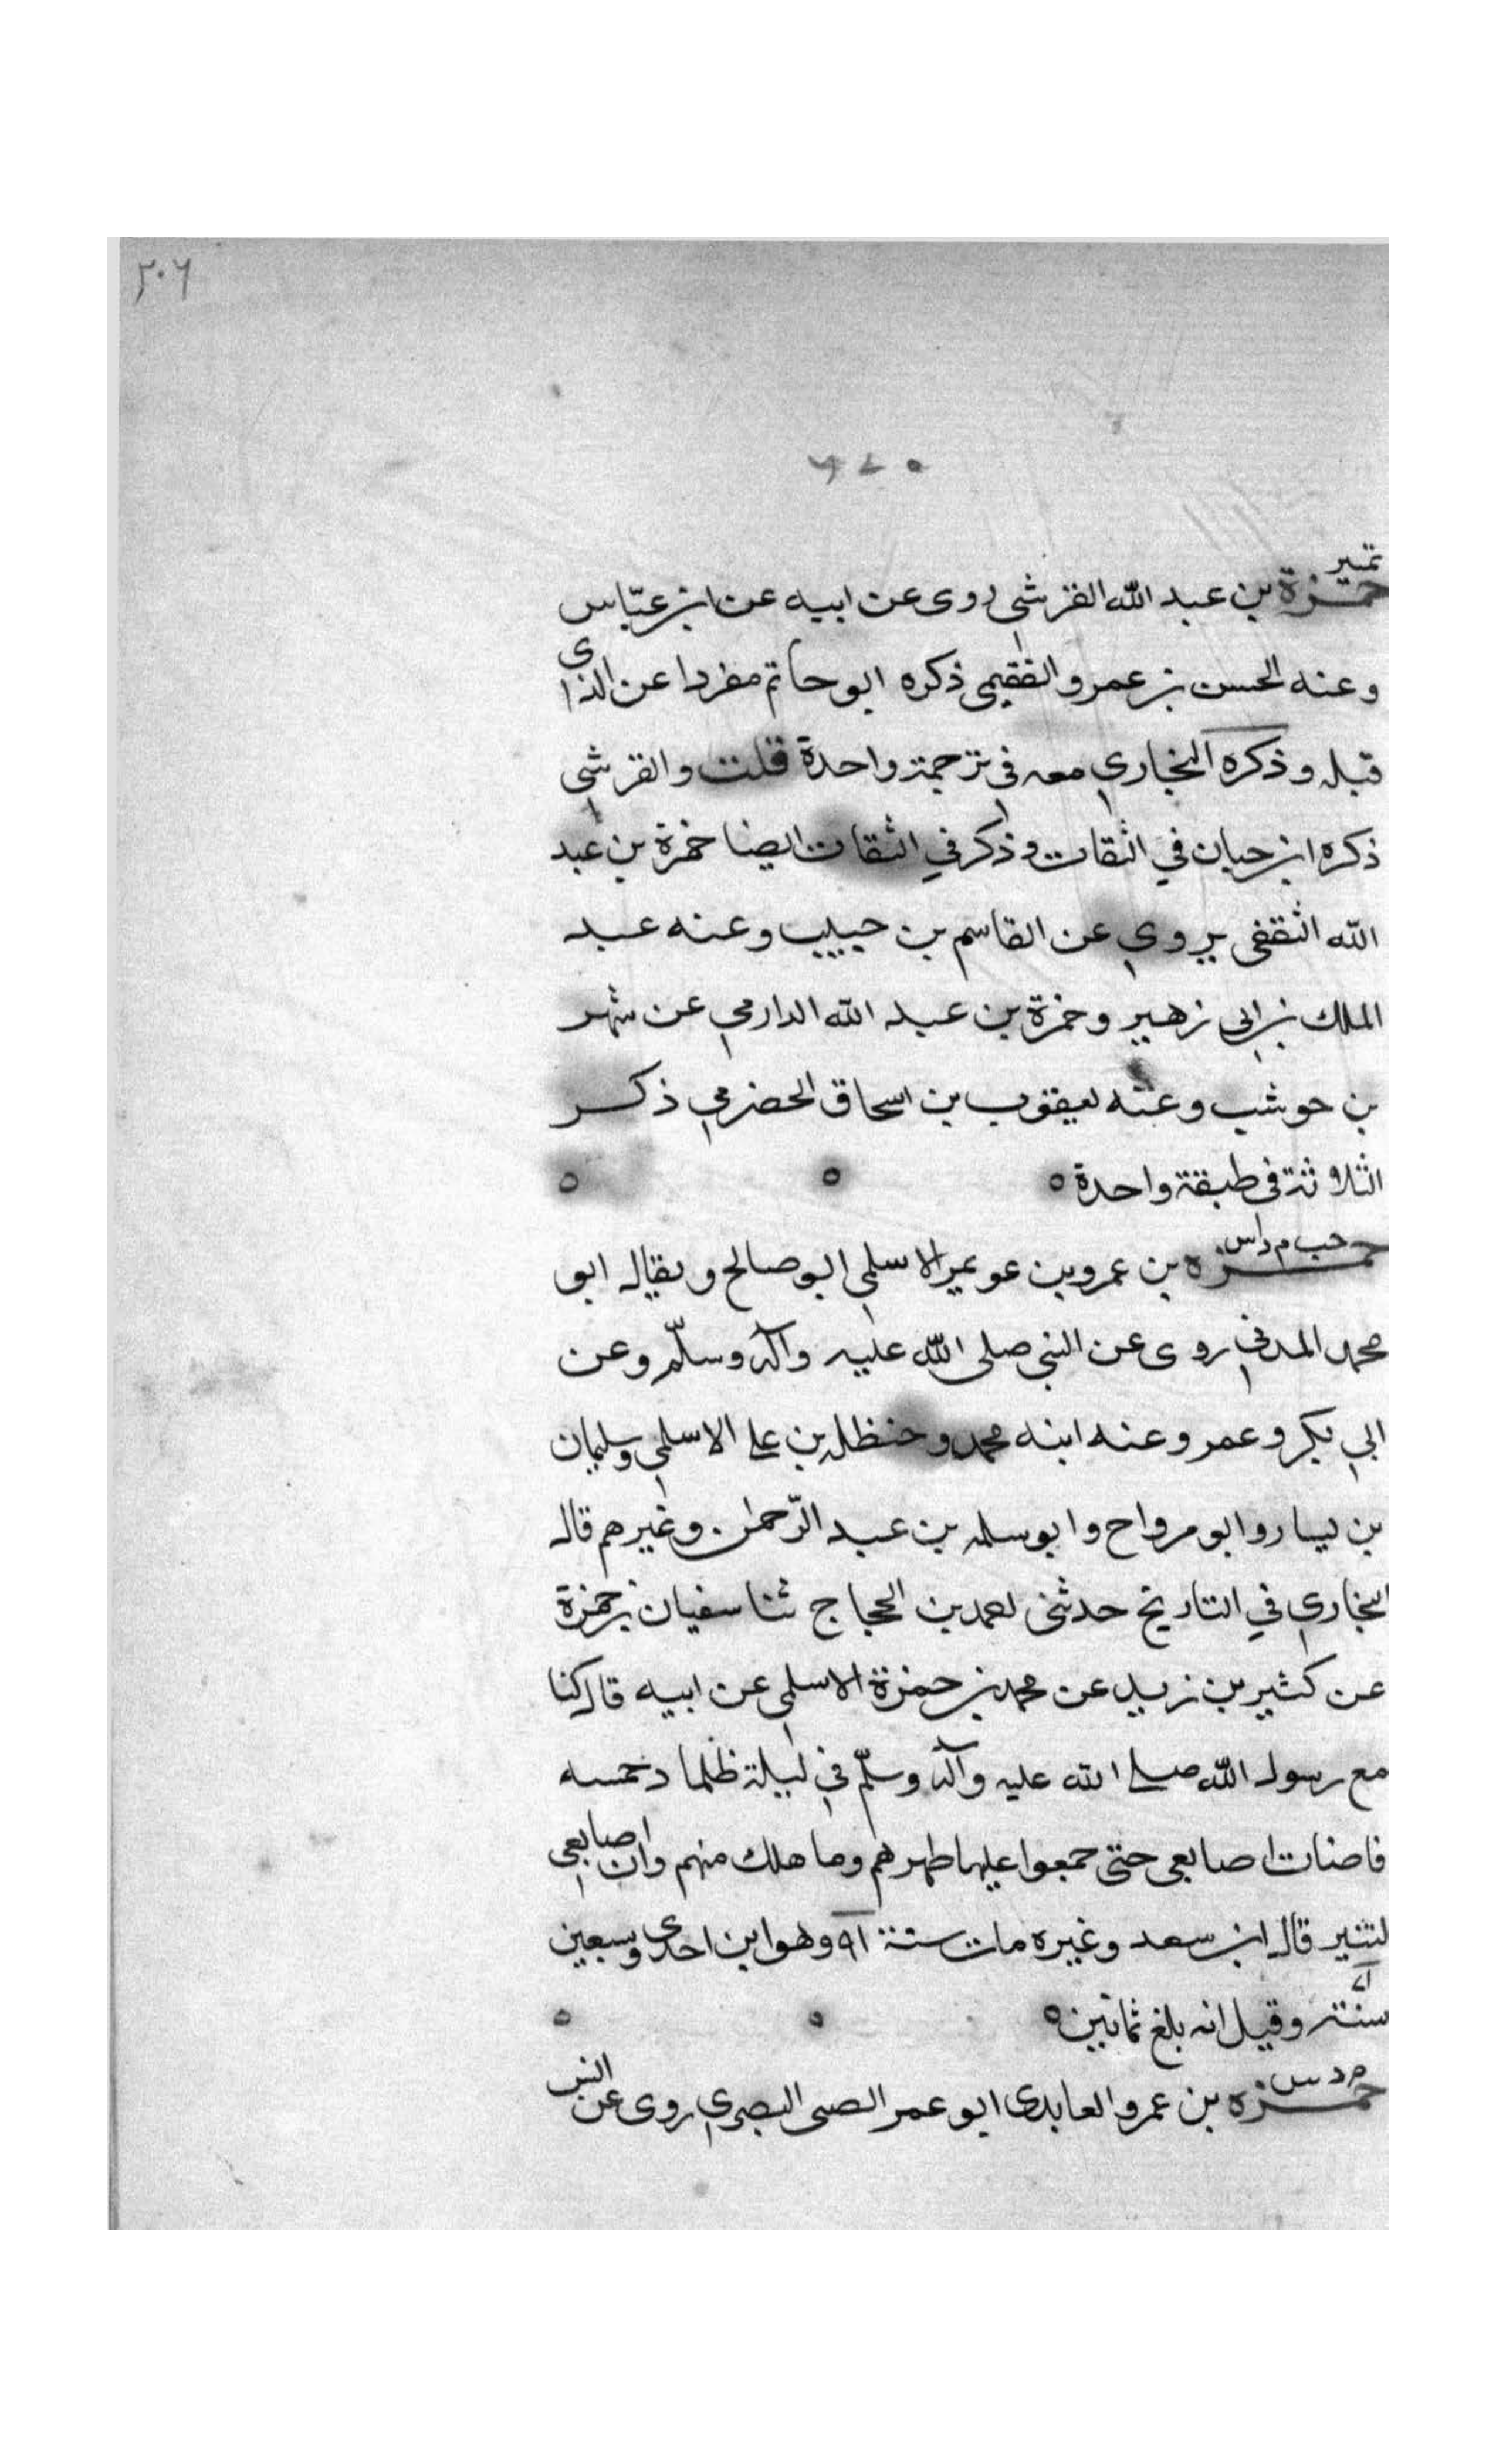 ٢٠٦
تمييز
حمزة بن عبد الله القرشي روى عن ابيه عن ابن عباس
وعنه الحسن بن عمرو الفقيمي ذكره ابو حاتم مفردا عن الذي
قبله وذكره البخاري معه في ترجمة واحدة قلت والقرشي
ذكره ابن حبان في الثقات وذكر في الثقات ايضا حمزة بن عبد
الله الثقفي يروي عن القاسم بن حبيب وعنه عبد
الملك بن ابي زهير وحمزة بن عبد الله الدارمي عن شهر
بن حوشب وعنه يعقوب بن اسحاق الحضرمي ذكر
الثلاثة في طبقة واحدة ٥ ٥ ٥
خت م د س
حمزه بن عمرو بن عويمر الاسلمي ابو صالح ويقال ابو
محمد المدني روى عن النبي صلى الله عليه وآله وسلّم وعن
ابي بكر وعمر وعنه ابنه محمد وحنظله بن علي الاسلمي وسليمان
بن يسار وابو مرواح وابو سلمه بن عبد الرّحمٰن وغيرهم قال
البخاري في التاريخ حدثني احمد بن الحجاج ثنا سفيان بن حمزة
عن كثير بن زيد عن محمد بن حمزة الاسلمي عن ابيه قال كنا
مع رسول الله صلى الله عليه وآله وسلّم في ليلة ظلما دحمسه
فاضات اصابعي حتى جمعوا عليها ظهرهم وما هلك منهم وان اصابعي
لتنير قال ابن سعد وغيره مات سنة ٦١ وهو ابن احدى وسبعين
سنة وقيل انه بلغ ثمانين ٥ ٥ ٥
م د س
حمزه بن عمرو العايذي ابو عمر الضبي البصري روى عن انس